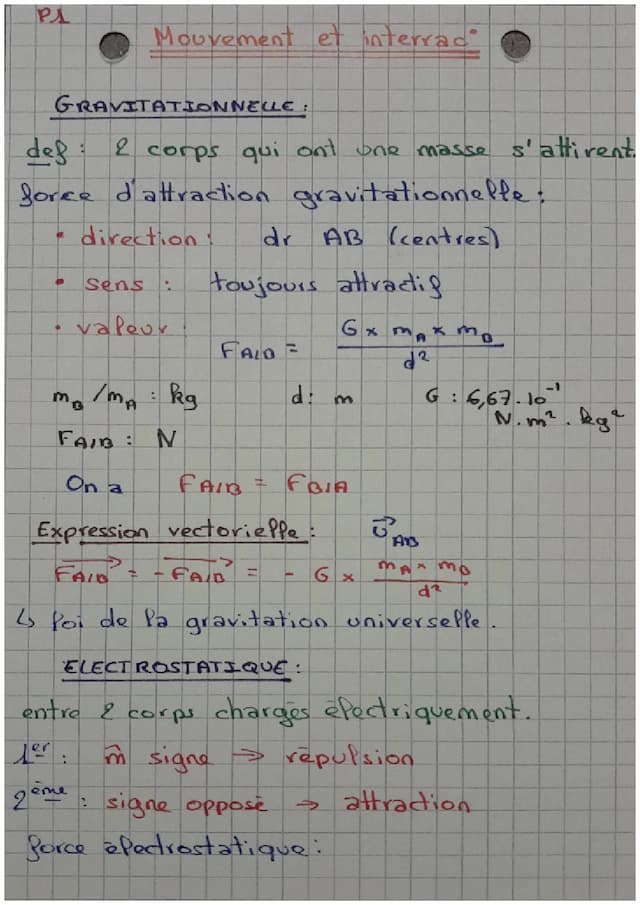 P1
Mouvement et interrac°
GRAVITATIONNELLE :
def : 2 corps qui ont une masse s'attirent.
force d'attraction gravitationnelle :
• direction : dr AB (centres)
• sens : toujours attractif
• valeur : F_A/B = G × m_A × m_B / d²
m_B / m_A : kg d : m G : 6,67.10⁻¹
N.m².kg²
F_A/B : N
On a F_A/B = F_B/A
Expression vectorielle : U⃗_AB
F_A/B⃗ = - F_A/B⃗ = - G × m_A × m_B / d²
↳ loi de la gravitation universelle.
ELECTROSTATIQUE :
entre 2 corps chargés électriquement.
1er : m̂ signe → répulsion
2ème : signe opposé → attraction
force électrostatique :